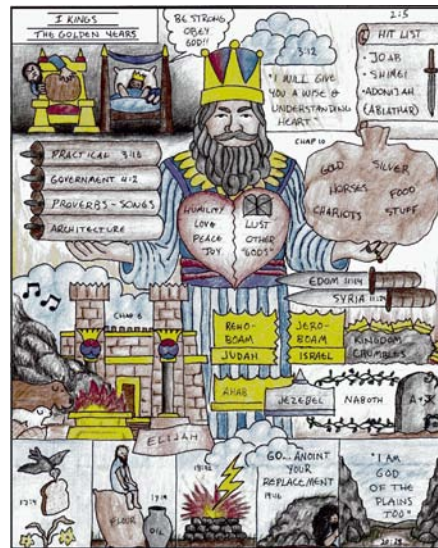 I KINGS
THE GOLDEN YEARS
BE STRONG
OBEY
GOD!!
3:12
"I WILL GIVE
YOU A WISE &
UNDERSTANDING
HEART"
2:5
HIT LIST
• JOAB
• SHIMEI
• ADONIJAH
(ABIATHAR)
PRACTICAL 3:16
GOVERNMENT 4:2
PROVERBS - SONGS
ARCHITECTURE
CHAP 10
GOLD SILVER
HORSES FOOD
CHARIOTS STUFF
HUMILITY
LOVE
PEACE
JOY
LUST
OTHER
"GODS"
EDOM 11:14
SYRIA 11:24
CHAP 6
REHO-
BOAM
JUDAH
JERO-
BOAM
ISRAEL
KINGDOM
CRUMBLES
AHAB
JEZEBEL
NABOTH
A + J
ELIJAH
17:4
FLOUR
17:14
OIL
GO... ANOINT
YOUR
REPLACEMENT
19:16
"I AM
GOD
OF THE
PLAINS
TOO"
20:28